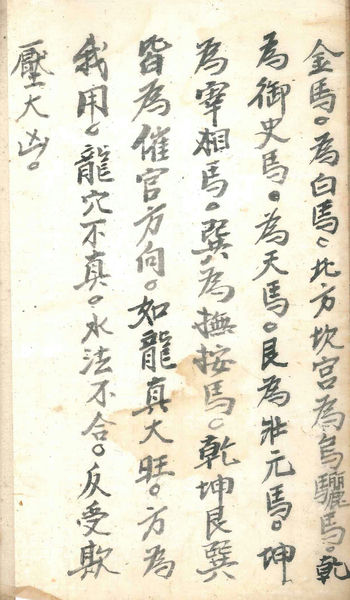 金馬。為白馬。北方坎宮為烏驪馬。乾
為御史馬。為天馬。艮為壯元馬。坤
為宰相馬。巽為撫按馬。乾坤艮巽
皆為催官方向。如龍真大旺。方為
我用。龍穴不真。水法不合。反受欺
壓大凶。